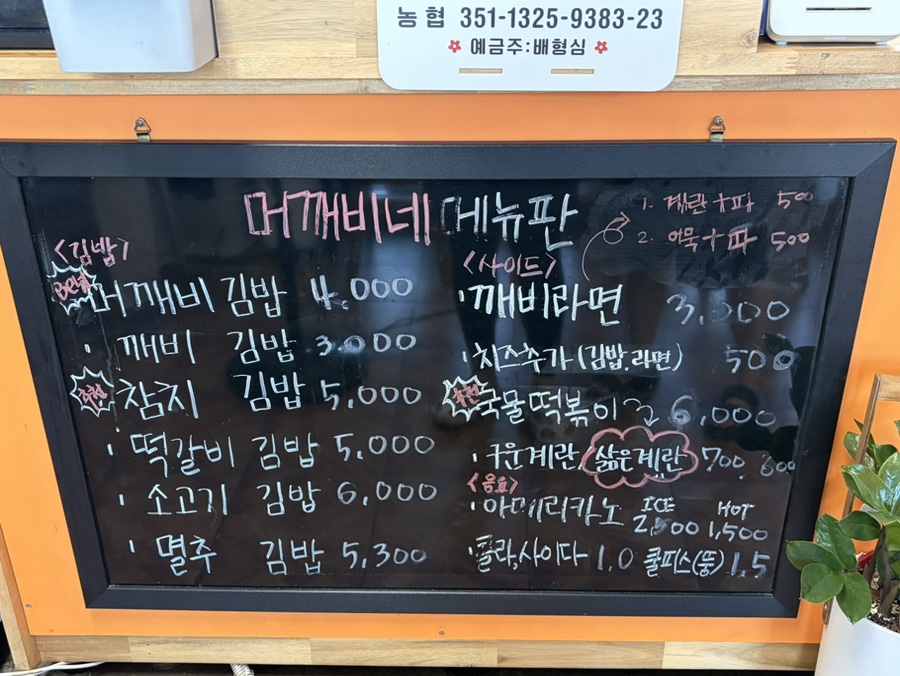 농협 351-1325-9383-23
예금주:배형심
머깨비네 메뉴판
<김밥>
머깨비 김밥 4,000
깨비 김밥 3,000
추천 참치 김밥 5,000
떡갈비 김밥 5,000
소고기 김밥 6,000
멸추 김밥 5,300
1. 계란+파 500
2. 어묵+파 500
<사이드>
깨비라면 3,000
치즈추가(김밥,라면) 500
추천 국물떡볶이 6,000
구운계란, 삶은계란 700 600
<음료>
아메리카노 ICE 2,500 HOT 1,500
콜라,사이다 1.0 쿨피스(뚱) 1.5